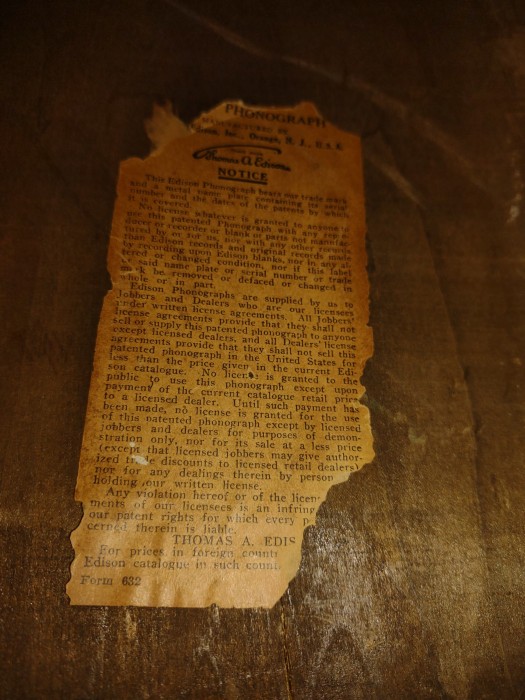 PHONOGRAPH
MANUFACTURED BY
Inc., Orange, N. J., U.S.A.
TRADE MARK
Thomas A. Edison
NOTICE
This Edison Phonograph bears our trade mark
and a metal name plate containing its serial
number and the dates of the patents by which
it is covered.
No license whatever is granted to anyone to
use this patented Phonograph with any repro-
ducer or recorder or blank or parts not manufac-
tured by or for us, nor with any other records
than Edison records and original records made
by recording upon Edison blanks, nor in any al-
tered or changed condition, nor if this label
said name plate or serial number or trade
mark be removed or defaced or changed in
whole or in part.
Edison Phonographs are supplied by us to
Jobbers and Dealers who are our licensees
under written license agreements. All Jobbers'
license agreements provide that they shall not
sell or supply this patented phonograph to anyone
except licensed dealers, and all Dealers' license
agreements provide that they shall not sell this
patented phonograph in the United States for
less than the price given in the current Edi-
son catalogue. No license is granted to the
public to use this phonograph except upon
payment of the current catalogue retail price
to a licensed dealer. Until such payment has
been made, no license is granted for the use
of this patented phonograph except by licensed
jobbers and dealers for purposes of demon-
stration only, nor for its sale at a less price
(except that licensed jobbers may give author-
ized trade discounts to licensed retail dealers)
nor for any dealings therein by person
holding our written license.
Any violation hereof or of the licen
ments of our licensees is an infring
our patent rights for which every p
cerned therein is liable.
THOMAS A. EDIS
For prices in foreign countr
Edison catalogue in such count
Form 632